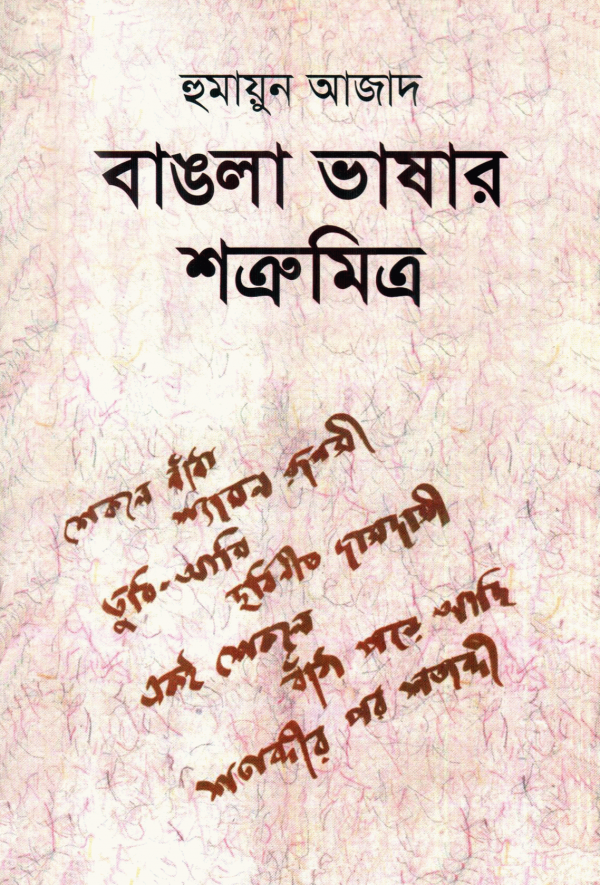 হুমায়ুন আজাদ
বাঙলা ভাষার
শত্রুমিত্র
শেকলে বাঁধা
শ্যামল রূপসী
তুমি-আমি
দুর্বিনীত দাসদাসী
একই শেকলে
বাঁধা পড়ে আছি
শতাব্দীর পর শতাব্দী